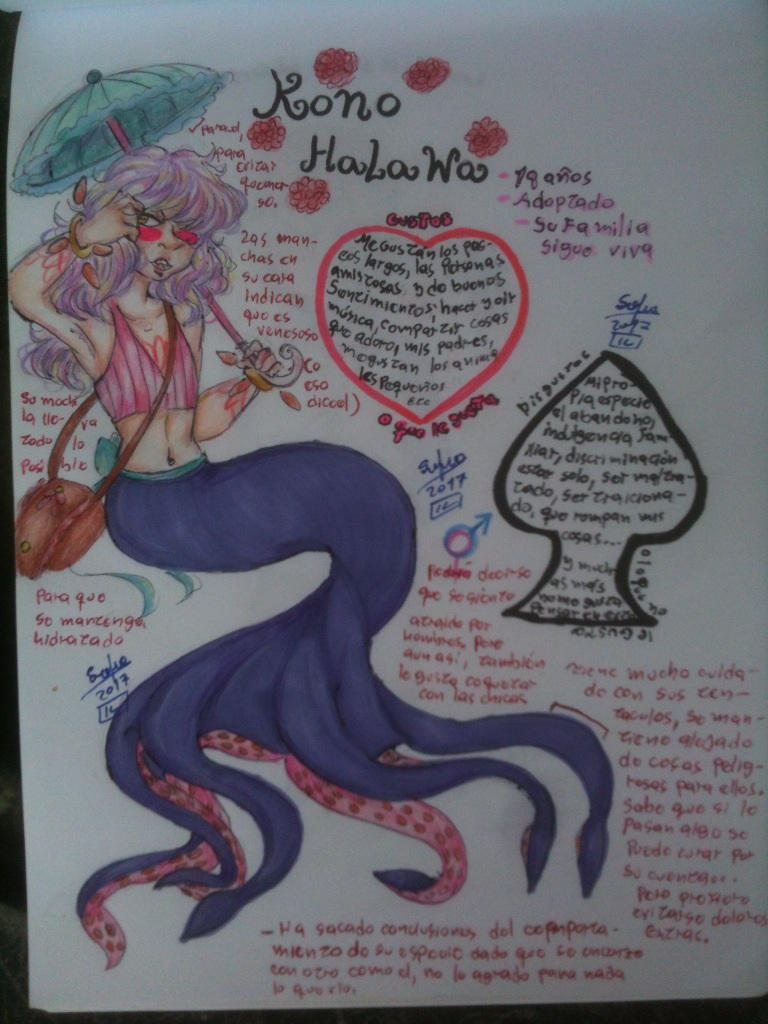 Kono
HaLaWa
- 19 años
- Adoptado
- Su Familia
sigue viva
Parasol,
para
evitar
quemar-
se.
Las man-
chas en
su cara
indican
que es
venenoso
(o
eso
dice!)
GUSTOS
Me gustan los pas-
eos largos, las personas
amistosas y de buenos
Sentimientos, hacer y oír
música, compartir cosas
que adoro, mis padres,
me gustan los anima-
les pequeños
etc
o que le gusta
Disgustos
Mi pro-
pia especie
el abandono,
indulgencia fam-
iliar, discriminación
estar solo, ser maltra-
tado, ser traiciona-
do, que rompan mis
cosas...
y mucho
as más
no me gusta
pensar en eso
o lo que no
le gusta
2017
2017
2017
Su moch-
la lleva
todo lo
posible
Para que
se mantenga
hidratado
Podría decirse
que se siente
atraído por
hombres, pero
aun así, también
le gusta coquetear
con las chicas
Tiene mucho cuida-
do con sus ten-
táculos, se man-
tiene alejado
de cosas pelig-
rosas para ellos.
Sabe que si le
pasan algo se
puede curar por
su cuenta...
Pero prefiere
evitarse dolores
extras.
- Ha sacado conclusiones del comporta-
miento de su especie dado que se encontro
con otro como el, no le agrado para nada
lo que vio.